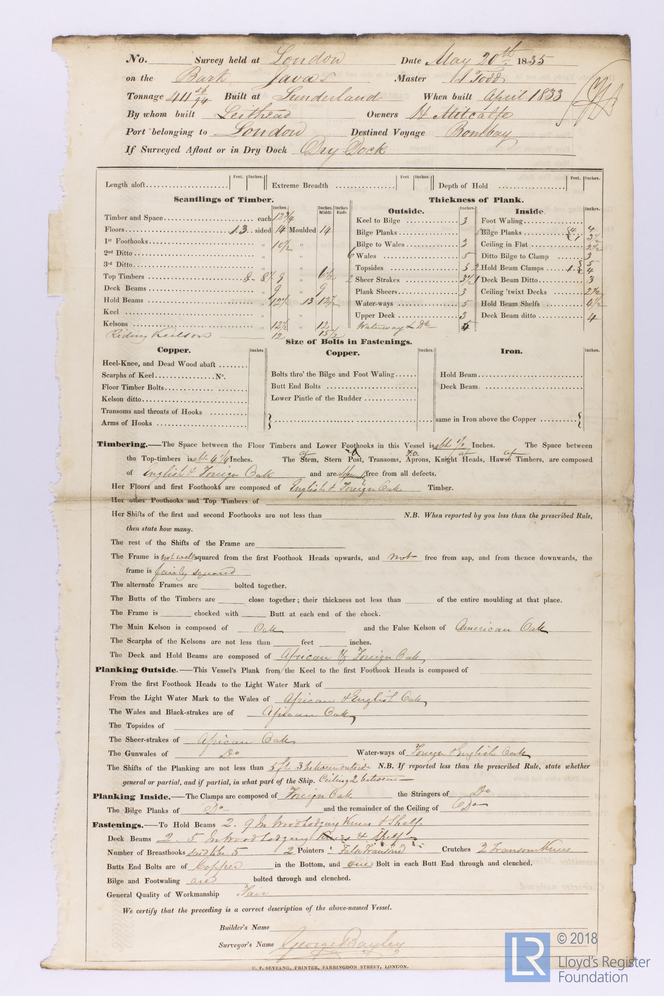 No. Survey held at London Date May 20th 1835
on the Bark Java Master Todd
Tonnage 411 Built at Sunderland When built April 1833
By whom built Leithead Owners H Metcalfe
Port belonging to London Destined Voyage Bombay
If Surveyed Afloat or in Dry Dock Dry Dock
Length aloft Feet. Inches. Extreme Breadth Feet. Inches. Depth of Hold Feet. Inches.
Scantlings of Timber. Thickness of Plank.
Inches. Inches Molded Inches Ends Outside. Inches. Inside Inches.
Timber and Space each Keel to Bilge 3 Foot Waling
Floors 13 sided 14 Moulded 14 Bilge Planks Bilge Planks
1st Foothooks 10½ Bilge to Wales 3 Ceiling in Flat
2nd Ditto 6 Wales 5 Ditto Bilge to Clamp 3
3rd Ditto Topsides Hold Beam Clamps
Top Timbers Sheer Strakes Deck Beam Ditto 3
Deck Beams 9 9 Plank Sheers 3 Ceiling 'twixt Decks
Hold Beams Water-ways 5 Hold Beam Shelfs
Keel Upper Deck 3 Deck Beam ditto 4
Kelsons Waterway
Riding Keelson 12
Size of Bolts in Fastenings.
Copper. Inches. Copper. Inches. Iron. Inches.
Heel-Knee, and Dead Wood abaft
Scarphs of Keel No. Bolts thro' the Bilge and Foot Waling Hold Beam
Floor Timber Bolts Butt End Bolts Deck Beam
Kelson ditto Lower Pintle of the Rudder
Transoms and throats of Hooks
Arms of Hooks same in Iron above the Copper
Timbering.—The Space between the Floor Timbers and Lower Foothooks in this Vessel is Inches. The Space between
the Top-timbers is Inches. The Stem, Stern Post, Transoms, Aprons, Knight Heads, Hawse Timbers, are composed
of English & Foreign Oak and are free from all defects.
Her Floors and first Foothooks are composed of English & Foreign Oak Timber.
Her other Foothooks and Top Timbers of
Her Shifts of the first and second Foothooks are not less than N.B. When reported by you less than the prescribed Rule,
then state how many.
The rest of the Shifts of the Frame are
The Frame is not well squared from the first Foothook Heads upwards, and not free from sap, and from thence downwards, the
frame is fairly squared
The alternate Frames are bolted together.
The Butts of the Timbers are close together; their thickness not less than of the entire moulding at that place.
The Frame is chocked with Butt at each end of the chock.
The Main Kelson is composed of Oak and the False Kelson of American Oak
The Scarphs of the Kelsons are not less than feet inches.
The Deck and Hold Beams are composed of African & Foreign Oak
Planking Outside.—This Vessel's Plank from the Keel to the first Foothook Heads is composed of
From the first Foothook Heads to the Light Water Mark of
From the Light Water Mark to the Wales of African & English Oak
The Wales and Black-strakes are of African Oak
The Topsides of
The Sheer-strakes of African Oak
The Gunwales of Do Water-ways of Foreign & English Oak
The Shifts of the Planking are not less than 5 ft 3 between outside N.B. If reported less than the prescribed Rule, state whether
general or partial, and if partial, in what part of the Ship. Ceiling 2 between
Planking Inside.—The Clamps are composed of Foreign Oak the Stringers of Do
The Bilge Planks of Do and the remainder of the Ceiling of Do
Fastenings.—To Hold Beams 2. 9 In Wood Lodging Knees & Shelf
Deck Beams 2. 5 In Wood Lodging & Shelf
Number of Breasthooks 5 2 Pointers Crutches 2 Transom Knees
Butts End Bolts are of Copper in the Bottom, and one Bolt in each Butt End through and clenched.
Bilge and Footwaling are bolted through and clenched.
General Quality of Workmanship Fair
We certify that the preceding is a correct description of the above-named Vessel.
Builder's Name
Surveyor's Name George Bayley
C. F. SEYFANG, PRINTER, FARRINGDON STREET, LONDON.
LR © 2018
Lloyd's Register
Foundation